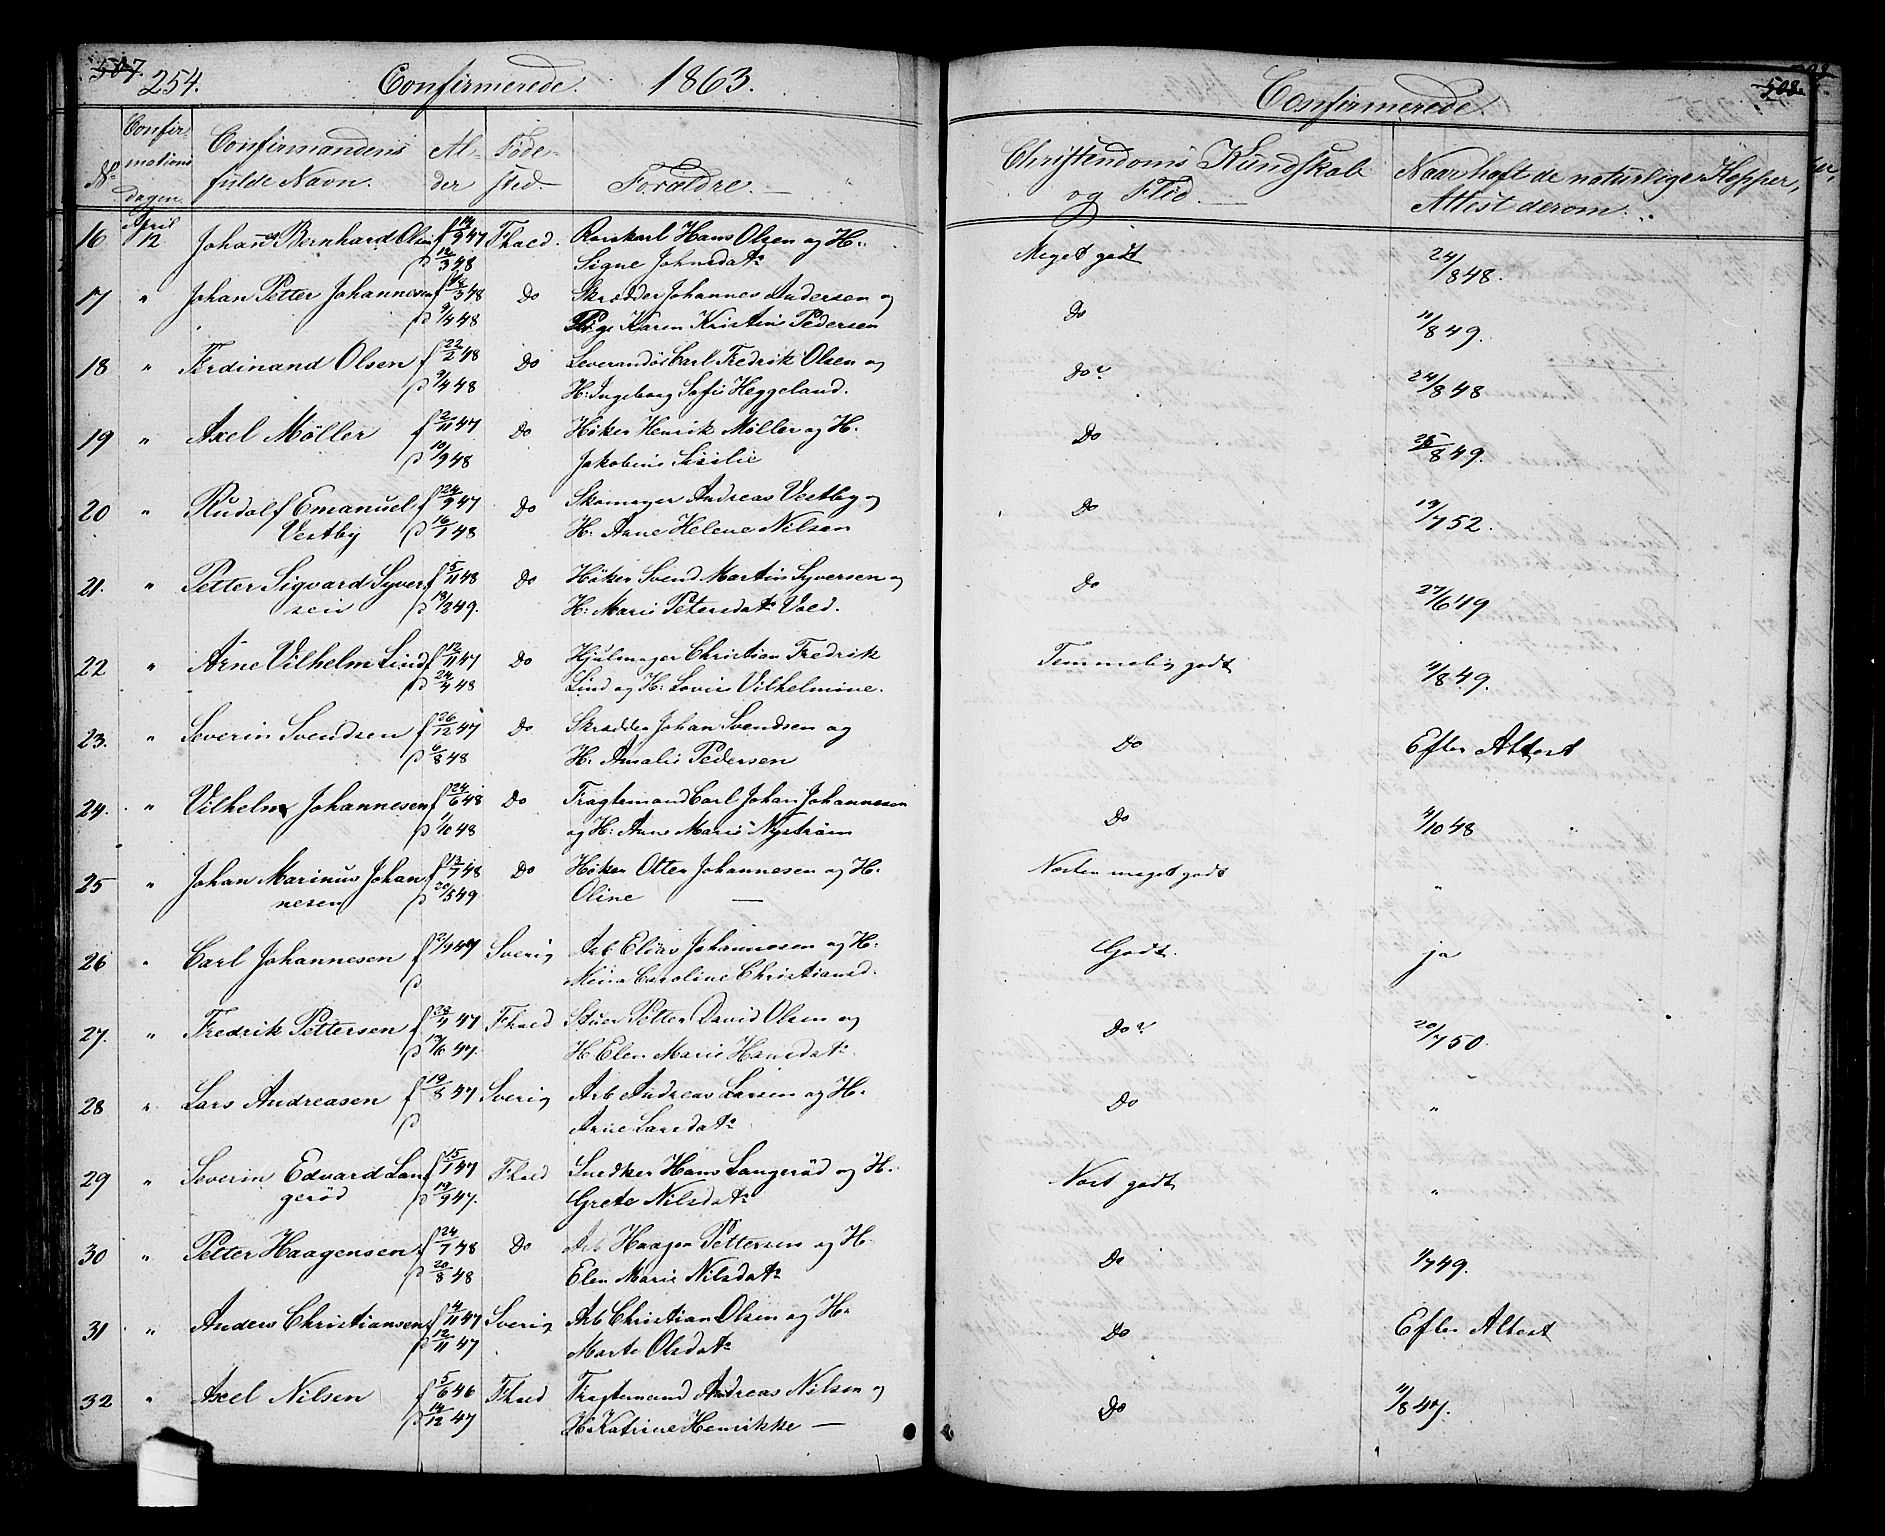 507. 254. Confirmerede. 1863.
No Confirmations Dagen Confirmandens fulde Navn. Alder Fødested. Forældre.
16 April 12 Johannes Bernhard Olsen f 14/9 47 Fhald. Hans Olsen og H:
p 12/3 48 Signe Johnsdatr
17 " Johan Petter Johannesen f 12/3 48 Do Skrædder Johannes Andersen og
p 9/4 48 Pige Karen Kristine Pedersen
18 " Ferdinand Olsen f 22/2 48 Do Leverandør Carl Fredrik Olsen og
p 9/4 48 H: Ingeborg Sofie Heggeland.
19 " Axel Möller f 2/11 47 Do Høker Henrik Møller og H.
p 10/9 48 Jakobine Sisilie
20 " Rudolf Emanuel f 24/9 47 Do Skomager Andreas Vestby og
Vestby p 16/1 48 H: Anne Helene Nilsen
21. " Petter Sigvard Syver f 5/11 48 Do Høker Svend Martin Syversen og
sen p 18/2 49. H: Marie Petersdatr Vold.
22 " Arne Vilhelm Lind f 12/11 47 Do Hjulmager Christian Fredrik
p 24/4 48 Lind og H: Lovise Vilhelmine.
23. " Severin Svendsen f 26/12 47 Do Skrædder Johan Svendsen og
p 6/8 48 H: Amalie Pedersen
24. " Vilhelm Johannesen f 24/6 48 Do Fragtemand Carl Johan Johannesen
p 1/10 48 og H: Anne Marie Nyström
25 " Johan Marinus Johan f 13/7 48 Do Høker Otter Johannesen og H:
nesen p 20/5 49 Oline —
26 " Carl Johannesen f 12/4 47 Sverig Arb Elias Johannesen og H:
p Mina Caroline Christiansd.
27. " Fredrik Pettersen f 23/4 47 Fhald Stuer Petter David Olsen og
p 13/6 47. H Elen Marie Hansdatr
28 " Lars Andreasen f 19/8 47 Sverig Arb Andreas Larsen og H:
p Anne Larsdatr
29 " Severin Edvard Lan f 15/1 47 Fhald Snedker Hans Langeröd og H:
geröd p 19/9 47. Grete Nilsdatr
30 " Petter Haagensen f 24/7 48 Do Arb Haagen Pettersen og H:
p 20/8 48 Elen Marie Nilsdatr
31 " Anders Christiansen f 4/11 47 Sverig Arb Christian Olsen og H:
p 12/11 47 Marte Olsdatr
32 " Axel Nilsen f 5/6 46 Fhald Fragtemand Andreas Nilsen og
p 14/12 47 H: Katrine Henrikke —
Confirmerede. 508.
Christendoms Kundskab og Flid. Naar hafte naturlige Kopper, Attest derom.
Meget godt 24/8 48.
Do 11/8 49.
Do 24/8 48
Do 25/8 49.
Do 13/7 52.
Do 27/6 49
Temmelig godt 11/8 49.
Do Efter Attest
Do 4/10 48
Næsten meget godt "
Godt. ja
Do 20/7 50.
Do "
Næst godt "
Do 1/7 49.
Do Efter Attest
Do 11/8 47.